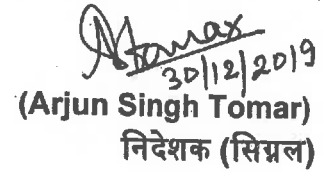 ATomar
30/12/2019
(Arjun Singh Tomar)
निदेशक (सिग्नल)